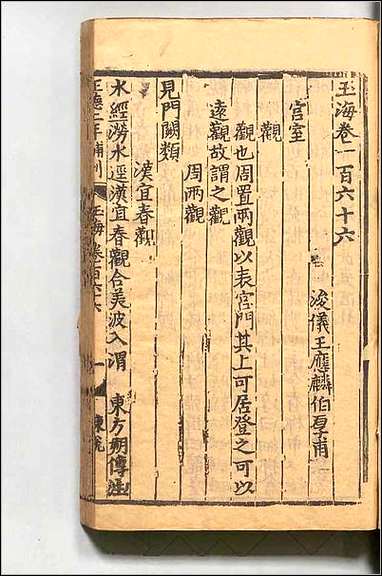 玉海卷一百六十六
浚儀王應麟伯厚甫
宮室
觀
觀也周置兩觀以表宮門其上可居登之可以
遠觀故謂之觀
周兩觀
見門闕類
漢宜春觀
水經澇水逕漢宜春觀合美陂入渭 東方朔傳注
正德二年補刊 玉海卷一百六十六 一